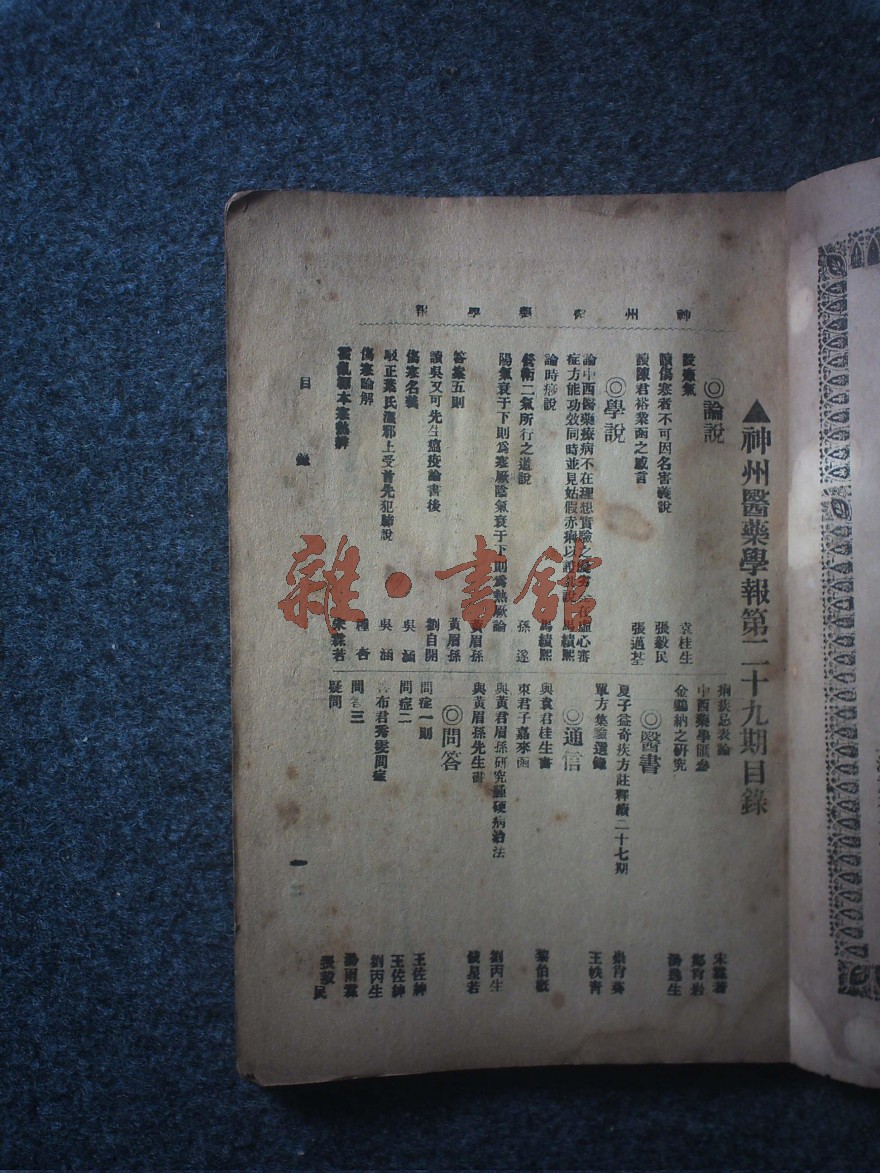 神州醫藥學報
▲神州醫藥學報第二十九期目錄
◎論說
袁桂生
讀傷寒者不可因名害義說 張毅民
讀陳君裕業函之感言 張邁荃
◎學說
論中西醫藥療病不在理想實驗之 在虛心審
症方能功效同時並見姑假赤痢以 馬績熙
論時痧說 馬績熙
營衛二氣所行之道說 孫 遂
陽氣衰于下則爲寒厥陰氣衰于下則爲熱厥論
黃眉孫
答案五則 黃眉孫
讀吳又可先生瘟疫論書後 劉自開
傷寒名義 吳 涵
駁正葉氏溫邪上受首先犯肺說 吳 涵
傷寒論解 種 杏
霍亂標本寒熱辨 朱霖若
痢疾總表論
中西藥學匯參 鄭肖岩
金雞納之研究 湯逸生
◎醫書
夏子益奇疾方註釋續二十七期
單方集驗選錄
◎通信
與袁君桂生書 黎伯概
東君子嘉來函 劉丙生
與黃君眉孫研究腫硬病治法
與黃眉孫先生書
◎問答
問症一則 王佐紳
問症二 王佐紳
布君秀雯問症 劉丙生
問 三 湯雨霖
疑問 張毅民
目錄
一
雜·書館